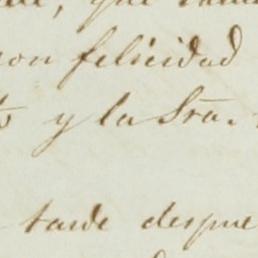 que
con felicidad
y la Sra.
tarde despue